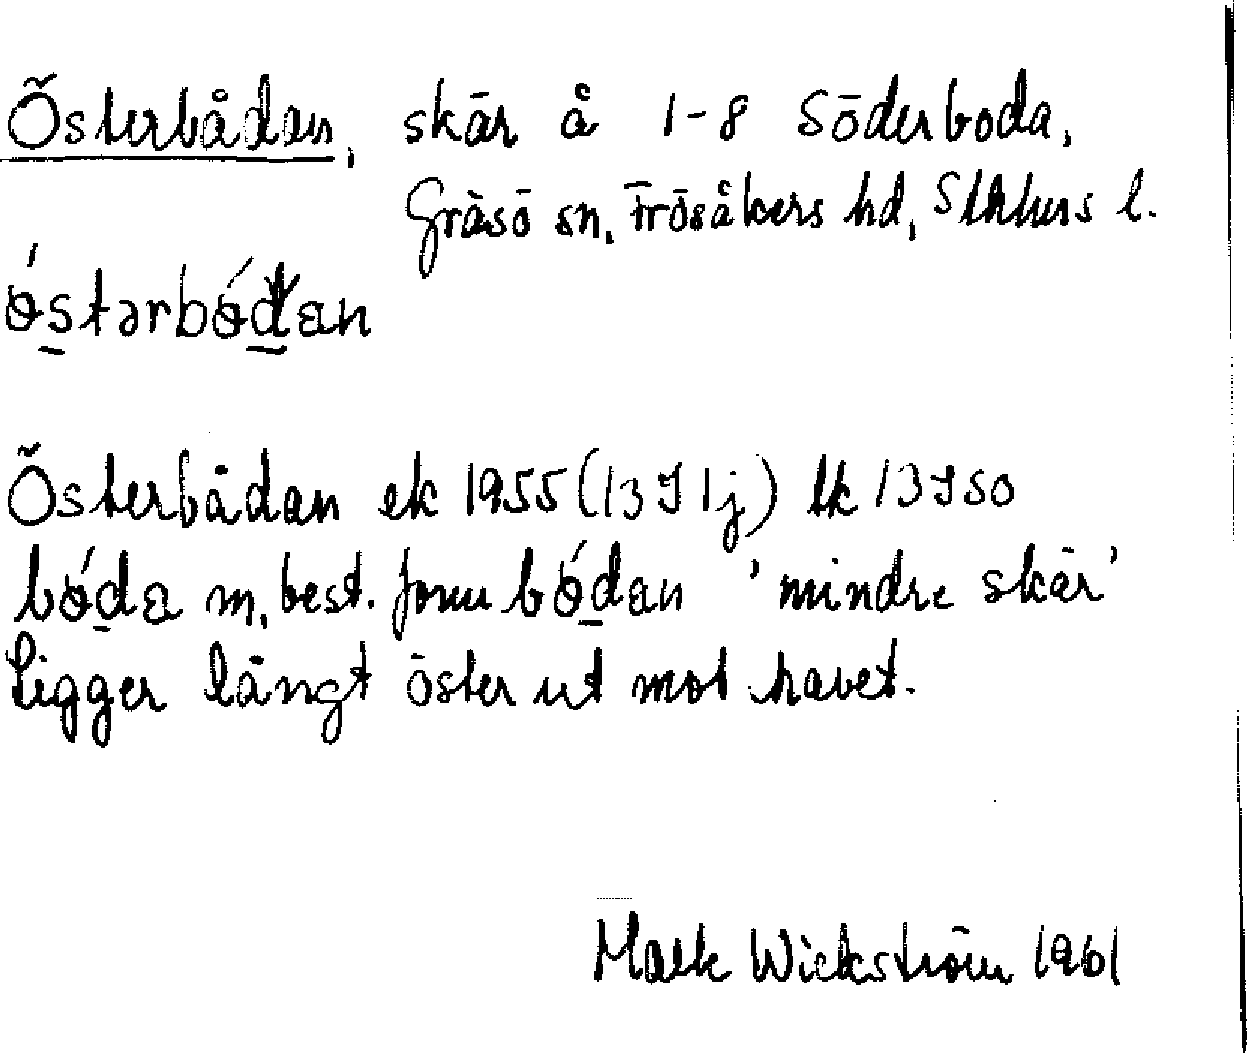 Österbådan, skär å 1-8 Söderboda,
Gräsö sn, Frösåkers hd, Sthlms l.
ǿstərbǿdan
Österbådan ek 1955 (13 I 1j) lk 13 I SO
bǿda m, best. form bǿdan 'mindre skär'
Ligger långt öster ut mot havet.
Maik Wickström 1961